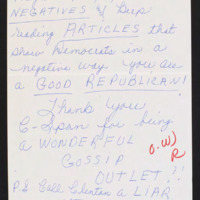 NEGATIVES & Deep
reading ARTICLES that
show Democrats in a
negative way. You are
a GOOD REPUBLICAN!
Thank You
C-Span for being
a WONDERFUL
GOSSIP
OUTLET!!
P.S. Call Clinton a LIAR